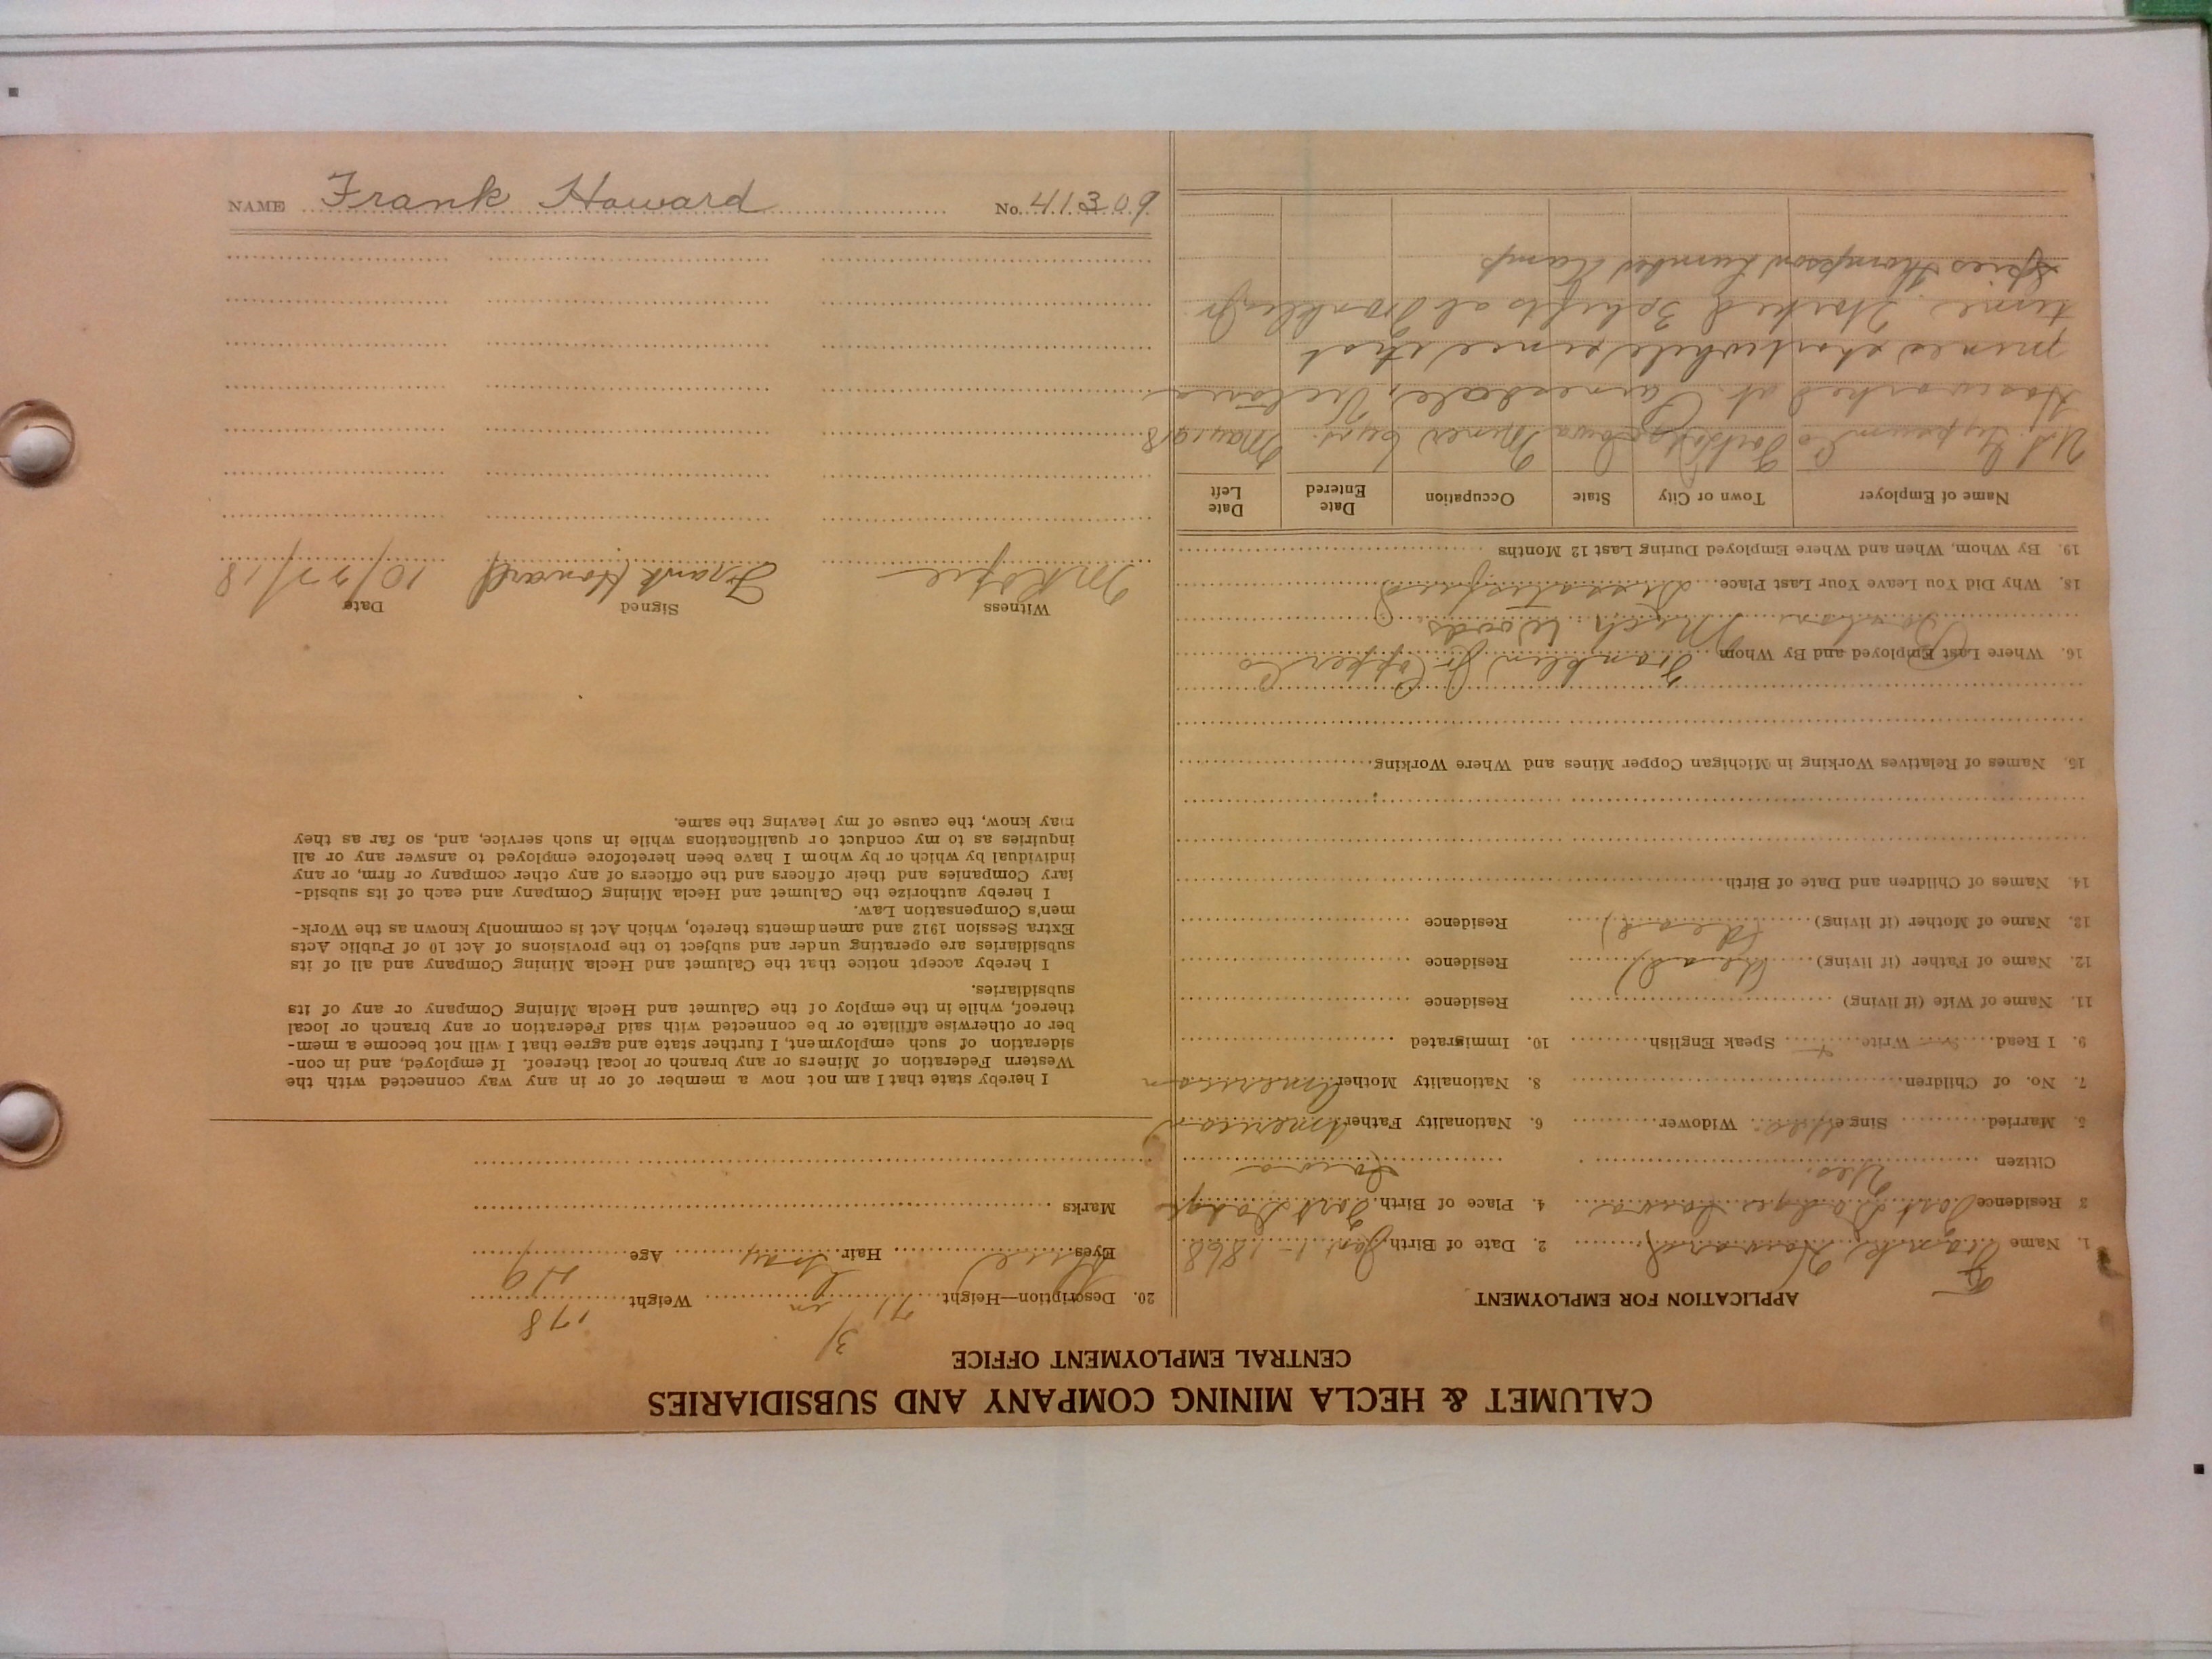 NAME Frank Howard No. 41309
CALUMET & HECLA MINING COMPANY AND SUBSIDIARIES
CENTRAL EMPLOYMENT OFFICE
APPLICATION FOR EMPLOYMENT
1. Name Frank Howard 2. Date of Birth 1868
3 Residence Fort Dodge Iowa 4. Place of Birth Fort Dodge
Citizen Yes. Iowa
5. Married Single Widower 6. Nationality Father American
7. No. of Children 8. Nationality Mother American
9. I Read Write Speak English 10. Immigrated
11. Name of Wife (if living) Residence
12. Name of Father (if living) (dead) Residence
13. Name of Mother (if living) (dead) Residence
14. Names of Children and Date of Birth
15. Names of Relatives Working in Michigan Copper Mines and Where Working
Franklin Jr. Copper Co
16. Where Last Employed and By Whom
Mich Woods
18. Why Did You Leave Your Last Place Dissatisfied
19. By Whom, When and Where Employed During Last 12 Months
Name of Employer Town or City State Occupation Date Entered Date Left
U.S. Gypsum Co Fort Dodge Iowa Miner May 1918
Has worked at Victoria
mines short while since that
time. Worked 3 shifts at Franklin Jr
Thompson Lumber Camp
20. Description—Height 71 in Weight 178
Eyes Blue Hair Gray Age 49
Marks
I hereby state that I am not now a member of or in any way connected with the
Western Federation of Miners or any branch or local thereof. If employed, and in con-
sideration of such employment, I further state and agree that I will not become a mem-
ber or otherwise affiliate or be connected with said Federation or any branch or local
thereof, while in the employ of the Calumet and Hecla Mining Company or any of its
subsidiaries.
I hereby accept notice that the Calumet and Hecla Mining Company and all of its
subsidiaries are operating under and subject to the provisions of Act 10 of Public Acts
Extra Session 1912 and amendments thereto, which Act is commonly known as the Work-
men's Compensation Law.
I hereby authorize the Calumet and Hecla Mining Company and each of its subsid-
iary Companies and their officers and the officers of any other company or firm, or any
individual by which or by whom I have been heretofore employed to answer any or all
inquiries as to my conduct or qualifications while in such service, and, so far as they
may know, the cause of my leaving the same.
Witness Signed Date
Frank Howard 10/22/18